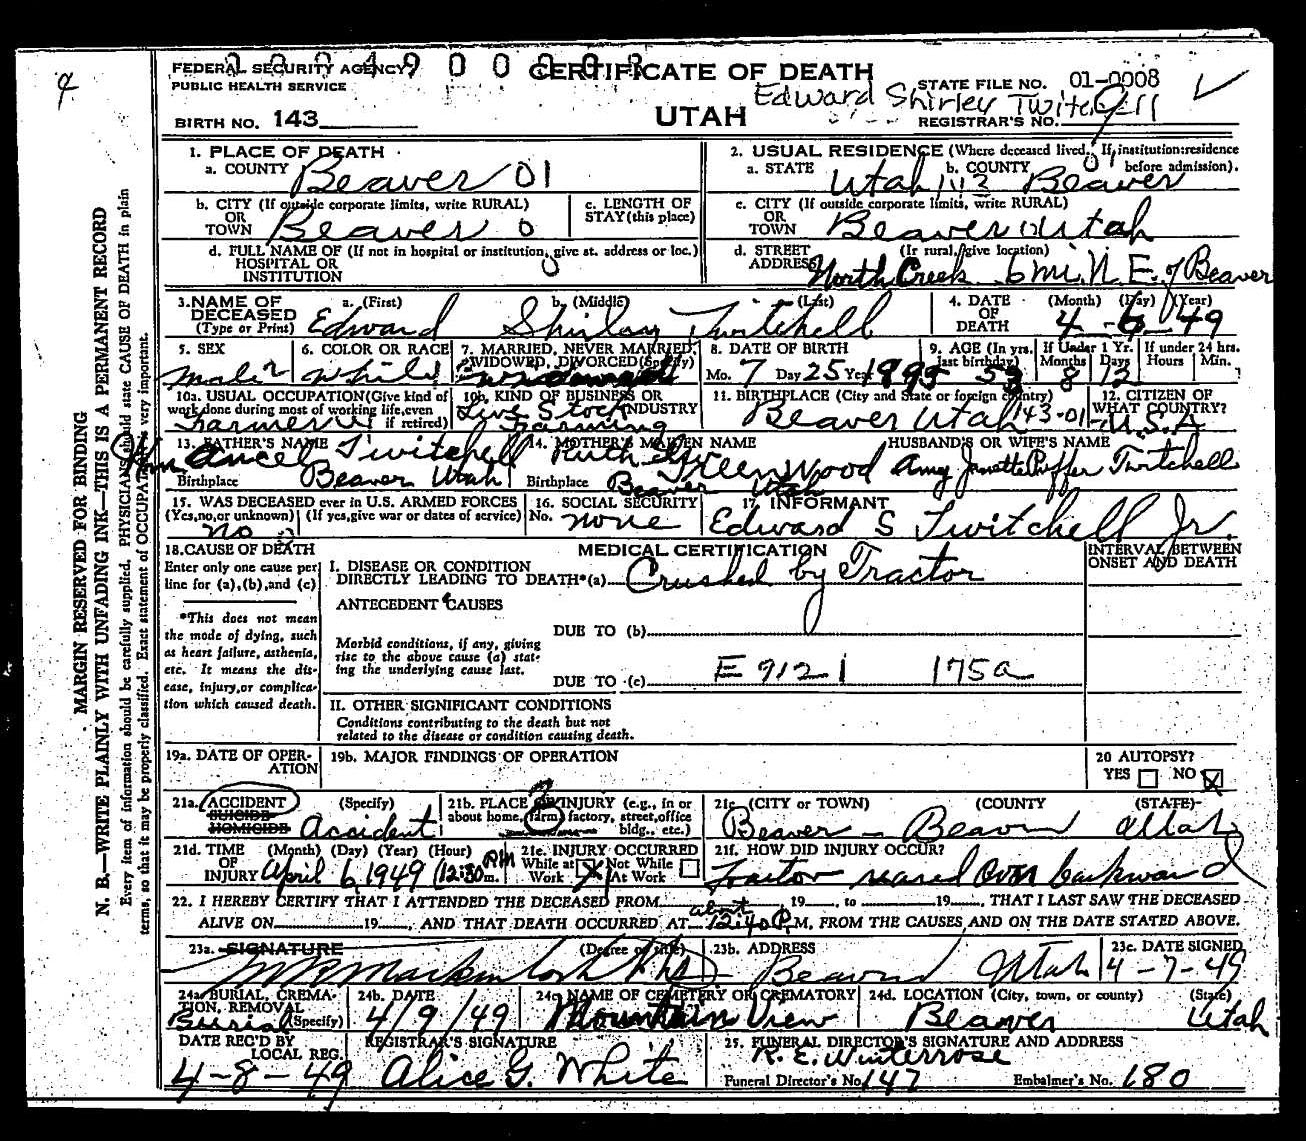 FEDERAL SECURITY AGENCY
PUBLIC HEALTH SERVICE
BIRTH NO. 143
CERTIFICATE OF DEATH
UTAH
STATE FILE NO. 01-0008
Edward Shirley Twitchell
REGISTRAR'S NO.
MARGIN RESERVED FOR BINDING
N. B.—WRITE PLAINLY WITH UNFADING INK—THIS IS A PERMANENT RECORD
Every item of information should be carefully supplied. PHYSICIANS should state CAUSE OF DEATH in plain
terms, so that it may be properly classified. Exact statement of OCCUPATION very important.
1. PLACE OF DEATH
a. COUNTY Beaver 01
b. CITY (If outside corporate limits, write RURAL)
OR
TOWN Beaver 0
c. LENGTH OF
STAY (this place)
d. FULL NAME OF (If not in hospital or institution, give st. address or loc.)
HOSPITAL OR
INSTITUTION
2. USUAL RESIDENCE (Where deceased lived. If institution: residence
before admission).
a. STATE Utah b. COUNTY Beaver
c. CITY (If outside corporate limits, write RURAL)
OR
TOWN Beaver Utah
d. STREET (If rural, give location)
ADDRESS North Creek 6 mi. N. E. of Beaver
3. NAME OF
DECEASED
(Type or Print)
a. (First) b. (Middle) (Last)
Edward Shirley Twitchell
4. DATE OF DEATH (Month) (Day) (Year)
4-6-49
5. SEX
Male
6. COLOR OR RACE
White
7. MARRIED, NEVER MARRIED,
WIDOWED, DIVORCED (Specify)
8. DATE OF BIRTH
Mo. 7 Day 25 Year
9. AGE (In yrs.
last birthday)
If Under 1 Yr.
Months Days
8 12
If under 24 hrs.
Hours Min.
10a. USUAL OCCUPATION (Give kind of
work done during most of working life, even
if retired)
Farmer
10b. KIND OF BUSINESS OR
INDUSTRY
Live Stock
Farming
11. BIRTHPLACE (City and State or foreign country)
Beaver Utah 143-01
12. CITIZEN OF
WHAT COUNTRY?
U.S.A
13. FATHER'S NAME
Ancel Twitchell
Birthplace Beaver Utah
14. MOTHER'S MAIDEN NAME
Ruth Greenwood
Birthplace Beaver Utah
HUSBAND'S OR WIFE'S NAME
Amy Janette Puffer Twitchell
15. WAS DECEASED ever in U.S. ARMED FORCES
(Yes, no, or unknown) (If yes, give war or dates of service)
no
16. SOCIAL SECURITY
No. none
17. INFORMANT
Edward S Twitchell Jr.
18. CAUSE OF DEATH
Enter only one cause per
line for (a), (b), and (c)
*This does not mean
the mode of dying, such
as heart failure, asthenia,
etc. It means the dis-
ease, injury, or complica-
tion which caused death.
MEDICAL CERTIFICATION
INTERVAL BETWEEN
ONSET AND DEATH
I. DISEASE OR CONDITION
DIRECTLY LEADING TO DEATH*(a) Crushed by Tractor
ANTECEDENT CAUSES
DUE TO (b)
Morbid conditions, if any, giving
rise to the above cause (a) stat-
ing the underlying cause last.
DUE TO (c) E 912 1 175a
II. OTHER SIGNIFICANT CONDITIONS
Conditions contributing to the death but not
related to the disease or condition causing death.
19a. DATE OF OPER-
ATION
19b. MAJOR FINDINGS OF OPERATION
20 AUTOPSY?
YES NO X
21a. ACCIDENT (Specify)
SUICIDE
HOMICIDE Accident
21b. PLACE OF INJURY (e.g., in or
about home, farm, factory, street, office
bldg., etc.)
21c. (CITY or TOWN) (COUNTY) (STATE)
Beaver - Beaver Utah
21d. TIME (Month) (Day) (Year) (Hour)
OF
INJURY April 6, 1949 12:30 PM m.
21e. INJURY OCCURRED
While at Work X Not While At Work
21f. HOW DID INJURY OCCUR?
Tractor reared over backward
22. I HEREBY CERTIFY THAT I ATTENDED THE DECEASED FROM 19, to 19, THAT I LAST SAW THE DECEASED
ALIVE ON 19, AND THAT DEATH OCCURRED AT about 12:40 P.M, FROM THE CAUSES AND ON THE DATE STATED ABOVE.
23a. SIGNATURE (Degree or title)
23b. ADDRESS
Beaver Utah
23c. DATE SIGNED
4-7-49
24a. BURIAL, CREMA-
TION, REMOVAL
(Specify) Burial
24b. DATE
4/9/49
24c. NAME OF CEMETERY OR CREMATORY
Mountain View
24d. LOCATION (City, town, or county) (State)
Beaver Utah
DATE REC'D BY
LOCAL REG.
4-8-49
REGISTRAR'S SIGNATURE
Alice G. White
25. FUNERAL DIRECTOR'S SIGNATURE AND ADDRESS
R. E. Winterrose
Funeral Director's No. 147 Embalmer's No. 180